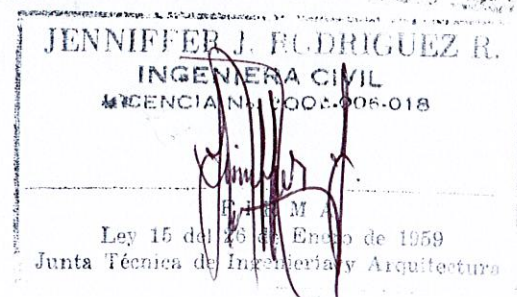 JENNIFFER J. RODRIGUEZ R.
INGENIERA CIVIL
LICENCIA No.
FIRMA
Ley 15 del 26 de Enero de 1959
Junta Técnica de Ingeniería y Arquitectura